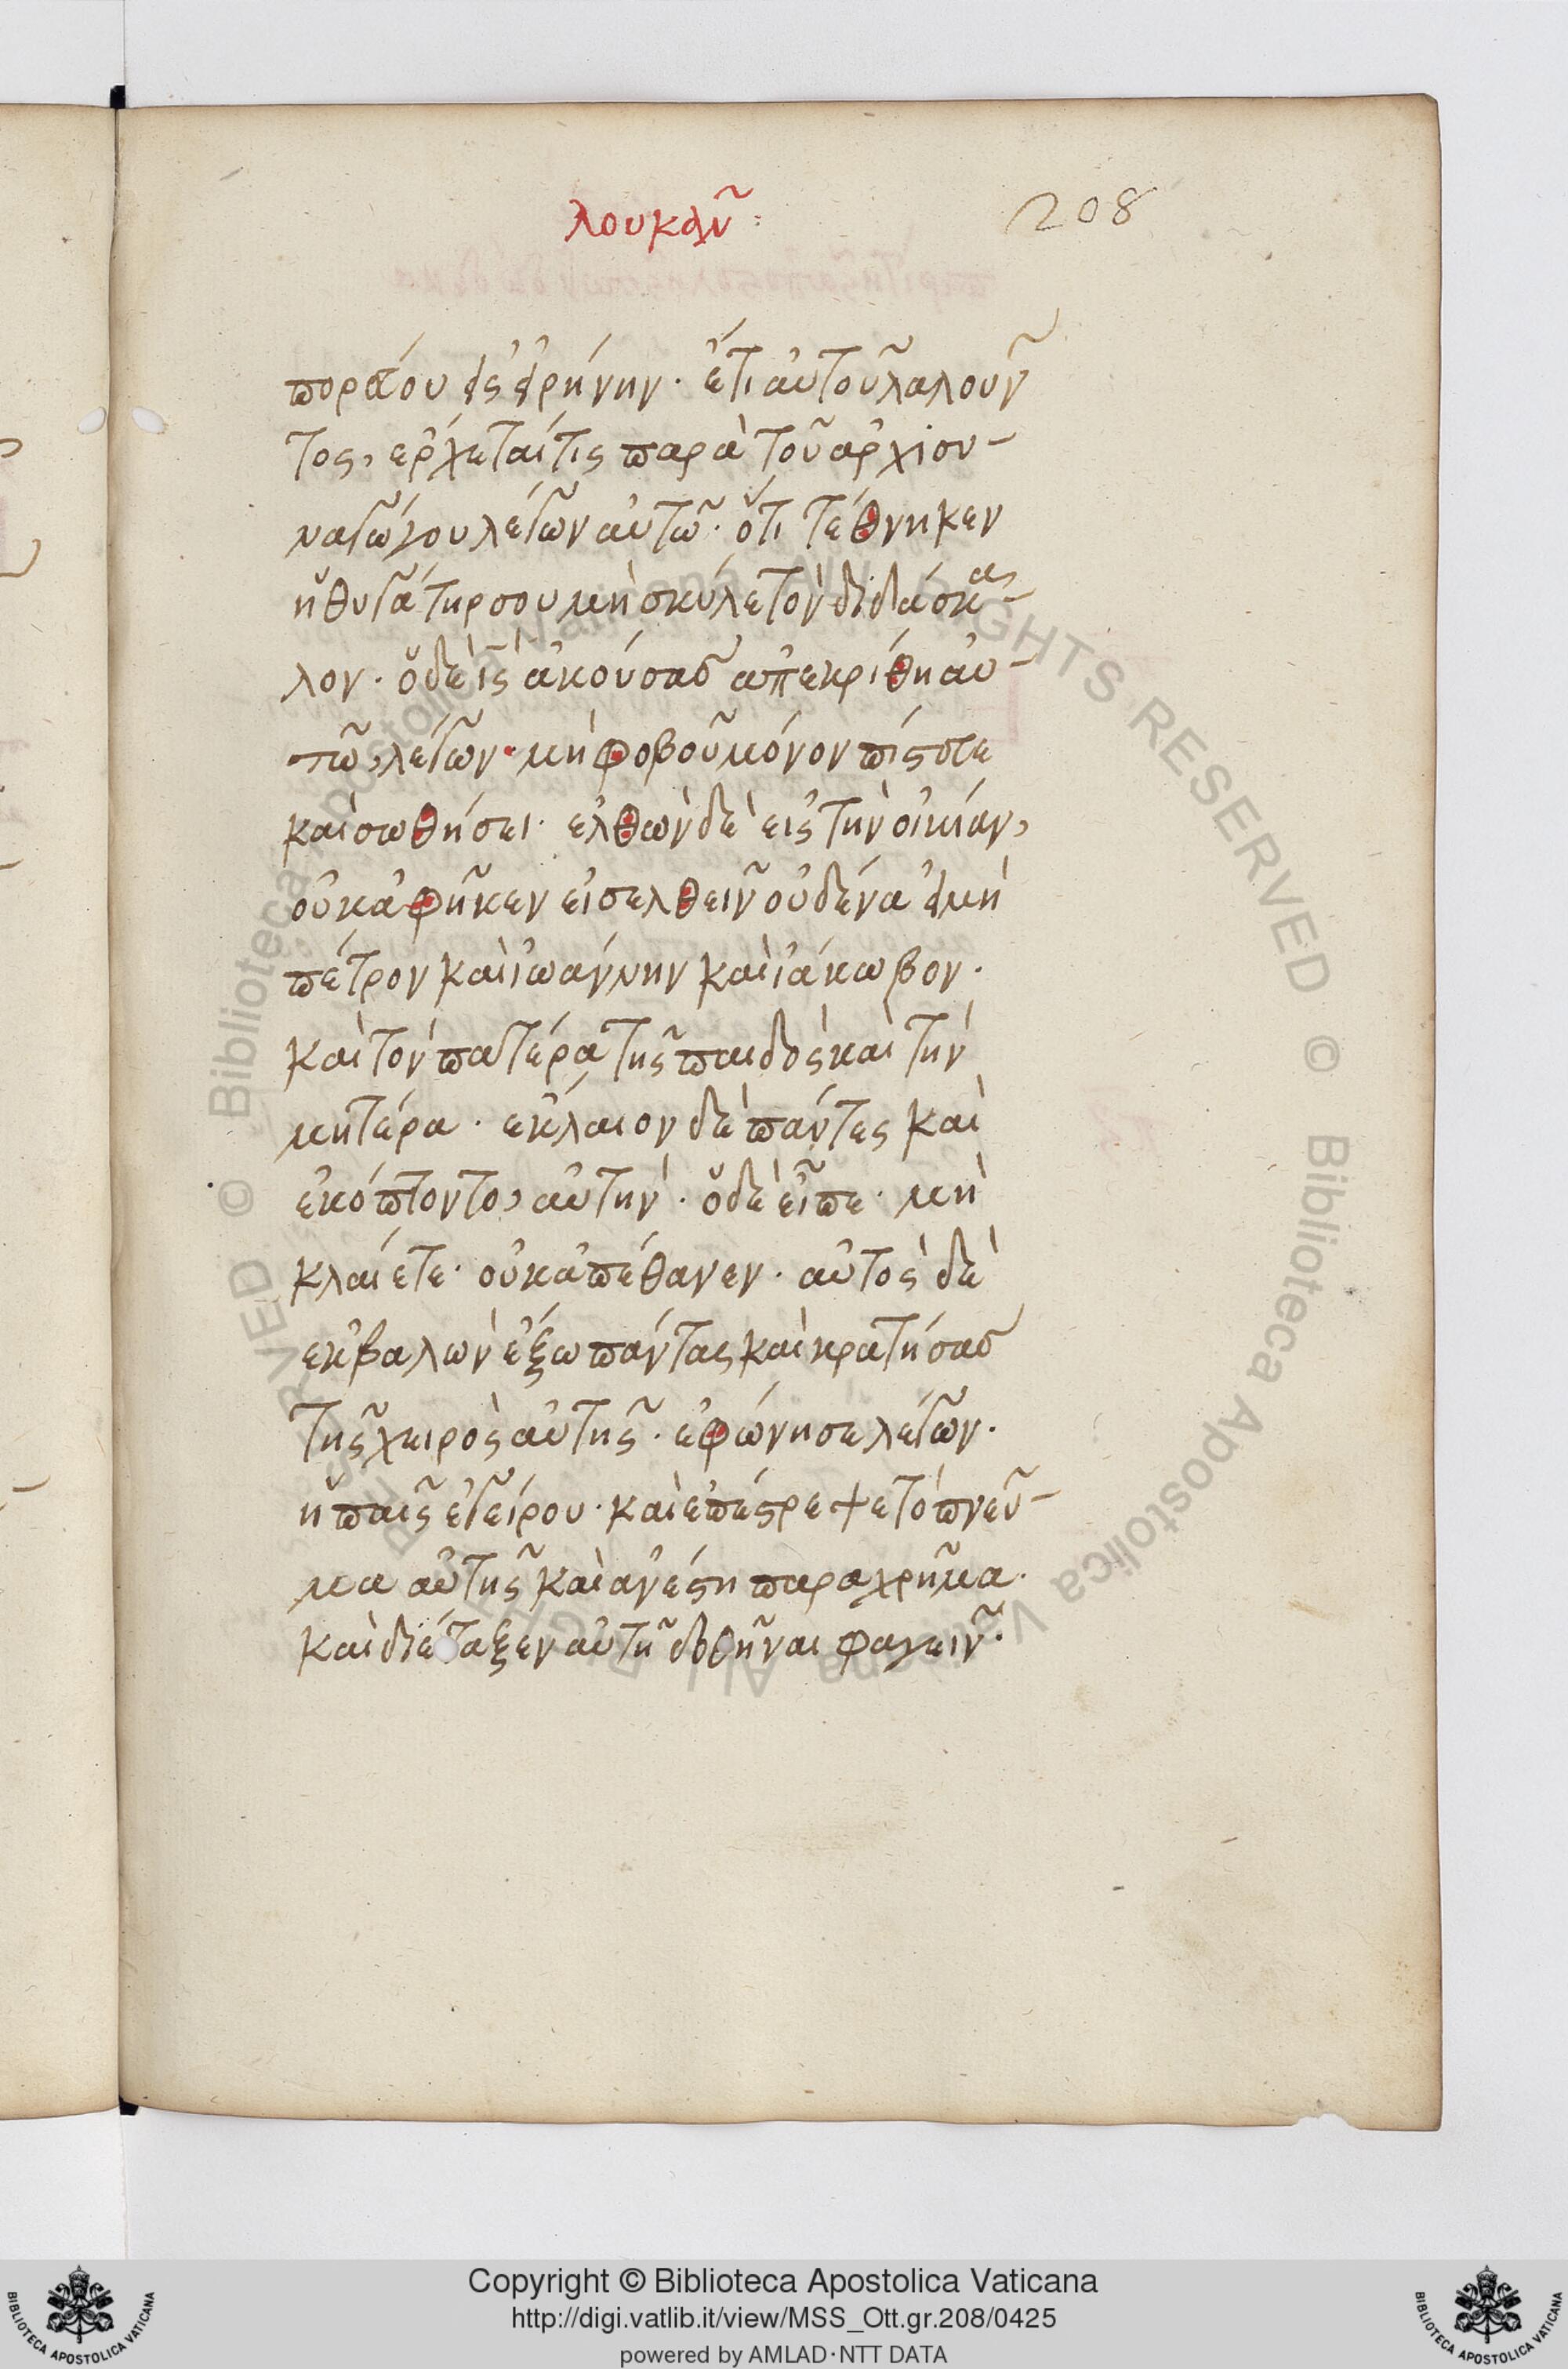 λουκᾶν:
208
πορεύου εἰς εἰρήνην· ἔτι αὐτοῦ λαλοῦν
τος, ἔρχεταί τις παρὰ τοῦ ἀρχισυ-
ναγώγου λέγων αὐτῶ· ὅτι τέθνηκεν
ἡ θυγάτηρ σου μὴ σκύλε τὸν διδάσκα-
λον· ὁ δὲ ις ἀκούσας ἀπεκρίθη αὐ-
τῶ, λέγων· μὴ φοβοῦ μόνον πίστευε
καὶ σωθήσει· ἐλθὼν δὲ εἰς τὴν οἰκίαν,
οὐκ ἀφῆκεν εἰσελθεῖν οὐδένα εἰ μὴ
πέτρον καὶ ἰωάννην καὶ ἰάκωβον·
καὶ τὸν πατέρα τῆς παιδὸς καὶ τὴν
μητέρα· ἔκλαιον δὲ πάντες καὶ
ἐκόπτοντο, αὐτήν· ὁ δὲ εἶπε· μὴ
κλαίετε· οὐκ ἀπέθανεν· αὐτὸς δὲ
ἐκβαλὼν ἔξω πάντας καὶ κρατήσας
τῆς χειρὸς αὐτῆς· ἐφώνησε λέγων·
ἡ παῖς ἐγείρου· καὶ ἐπέστρεψε τὸ πνεῦ-
μα αὐτῆς καὶ ἀνέστη παραχρῆμα·
καὶ διέταξεν αὐτῆ δοθῆναι φαγεῖν·
© Biblioteca Apostolica Vaticana ALL RIGHTS RESERVED © Biblioteca Apostolica Vaticana ALL RIGHTS RESERVED
Copyright © Biblioteca Apostolica Vaticana
http://digi.vatlib.it/view/MSS_Ott.gr.208/0425
powered by AMLAD·NTT DATA
BIBLIOTECA APOSTOLICA VATICANA
BIBLIOTECA APOSTOLICA VATICANA